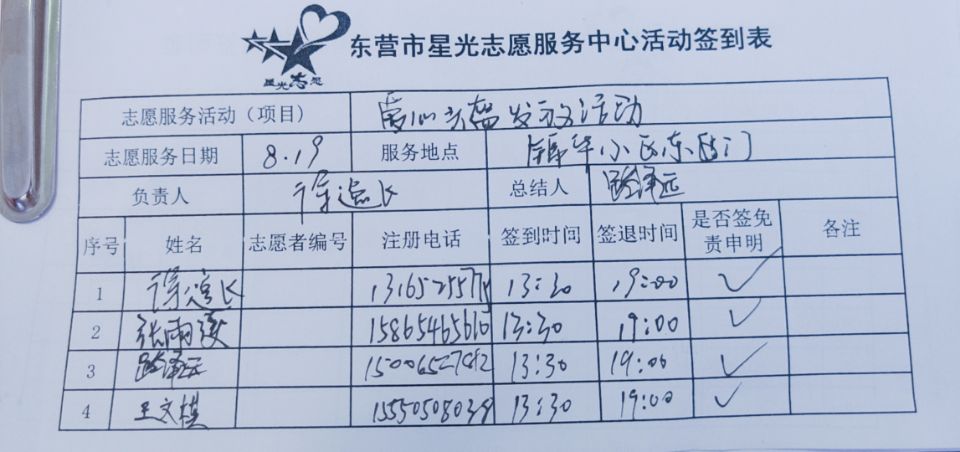 星光志愿
东营市星光志愿服务中心活动签到表
志愿服务活动（项目） 爱心头盔发放活动
志愿服务日期 8.19 服务地点 锦华小区东门
负责人 总结人 路泽远
序号 姓名 志愿者编号 注册电话 签到时间 签退时间 是否签免责申明 备注
1 13:30 19:00 ✓
2 张雨 15865465610 13:30 19:00 ✓
3 路泽远 13:30 19:00 ✓
4 王文棋 15550508038 13:30 19:00 ✓